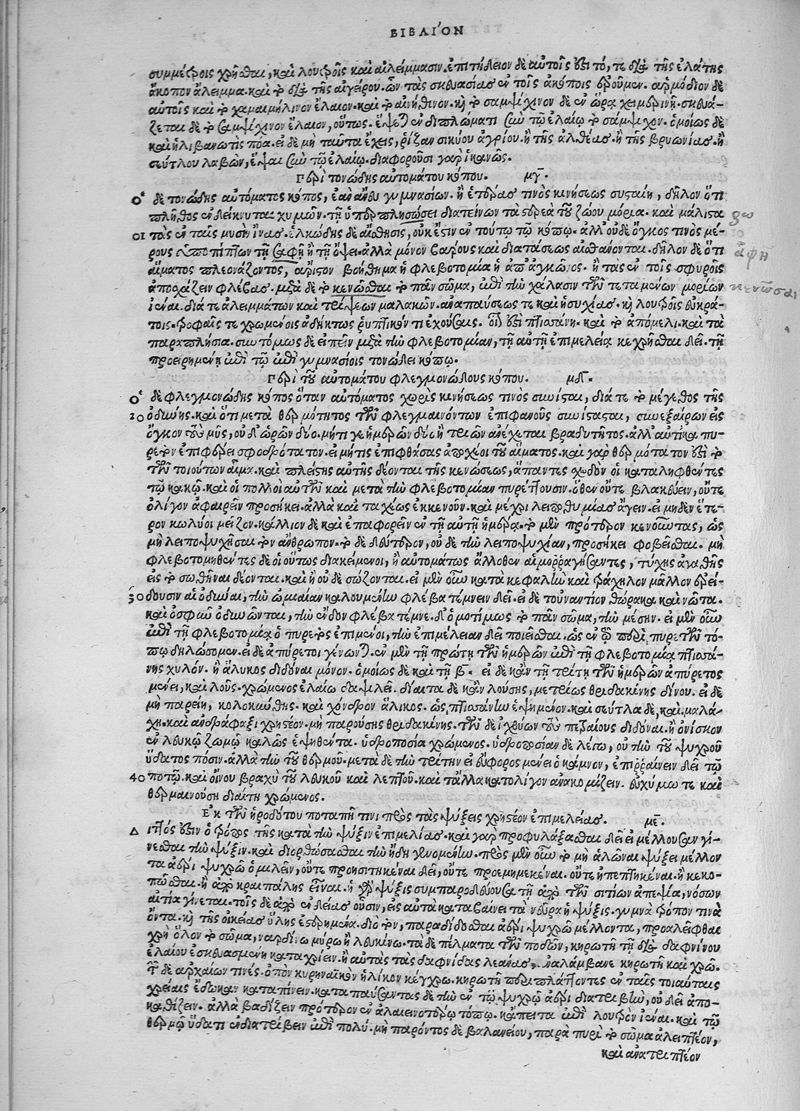 ΒΙΒΛΙΌΝ
συμμέτροις χρῆσθαι, καὶ λουτροῖς καὶ ἀλείμμασιν. ἐπιτήδειον δὲ αὐτοῖς ἐστὶ τό, τε διὰ τῆς ἐλάτης
ἄκοπον ἄλειμμα. καὶ τὸ διὰ τῆς αἰγείρου. ὧν τὰς σκευασίας ἐν τοῖς ἀκόποις ἐροῦμεν. ἁρμόδιον δὲ
αὐτοῖς καὶ τὸ χαμαιμήλινον ἔλαιον. καὶ τὸ ἀνήθινον. καὶ τὸ σαμψύχινον δὲ ἐν ὥρᾳ χειμερινῇ. σκευάζεται
δὲ τὸ σαμψύχινον ἔλαιον, οὕτως. ἕψεται ἐν διπλώματι σὺν τῷ ἐλαίῳ τὸ σάμψυχον. ὁμοίως δὲ
καὶ ἡ λιβανωτὶς πόα. εἰ δὲ μὴ ταῦτα ἔχεις, ῥίζαν σικύου ἀγρίου. ἢ τῆς ἀλθέας. ἢ τῆς βρυωνίας. ἢ
σεύτλου λαβών, ἕψε σὺν τῷ ἐλαίῳ. διαφοροῦσι γὰρ ἱκανῶς.
Περὶ τονώδης αὐτομάτου κόπου. μγ.
Ὁ δὲ τονώδης αὐτόματος κόπος, ἐὰν ἄνευ γυμνασίων. ἢ ἑτέρας τινὸς κινήσεως συσταίη, δῆλον ὅτι
πλῆθος ἐνδείκνυται χυμῶν. τῇ ὑπερπληρώσει διατείνων τὰ στερεὰ τοῦ ζώου μόρια. καὶ μάλιστα
τὰς ἐν ταῖς μυσὶν ἶνας. ἑλκώδης δὲ αἴσθησις, οὐκ ἔστιν ἐν τούτῳ τῷ κόπῳ. ἀλλ' οὐδὲ ὄγκος τινὸς μέρους
ὑποπίπτων τῇ ἁφῇ ἢ τῇ ὄψει. ἀλλὰ μόνον βάρους καὶ διατάσεως αἰσθάνονται. δῆλον δὲ ὅτι
αἵματος πλεονάζοντος, ἄριστον βοήθημα ἡ φλεβοτομία ἢ ἀπ' ἀγκῶνος. ἢ τὰς ἐν τοῖς σφυροῖς
ἀποσχάζειν φλέβας. μετὰ δὲ τὸ κενῶσαι τὸ πᾶν σῶμα, ἐπὶ τὴν χάλασιν τῶν τεταμένων μορίων
ἰέναι. διά τε ἀλειμμάτων καὶ τρίψεων μαλακῶν. ἀναπαύσεώς τε καὶ ἡσυχίας. καὶ λουτροῖς εὐκράτοις.
τροφαῖς τε χρωμένοις ἀδήκτως ῥυπτικόν τι ἐχούσαις. οἵα ἐστὶ πτισάνη. καὶ τὸ ἀπόμελι. καὶ τὰ
παραπλήσια. συντόμως δὲ εἰπεῖν μετὰ τὴν φλεβοτομίαν, τῇ αὐτῇ ἐπιμελείᾳ κεχρῆσθαι δεῖ. τῇ
προειρημένῃ ἐπὶ τῷ ἐπὶ γυμνασίοις τονώδει κόπῳ.
Περὶ τοῦ αὐτομάτου φλεγμονώδους κόπου. μδ.
Ὁ δὲ φλεγμονώδης κόπος ὅταν αὐτόματος χωρὶς κινήσεως τινὸς συνίσταται, διά τε τὸ μέγεθος τῆς
20 ὀδύνης. καὶ ὅτι μετὰ θερμότητος τῶν φλεγμαινόντων ἐπιφανοῦς συνίσταται, συνεξαίρων εἰς
ὄγκον τοὺς μῦς, οὐδ' ὡρῶν δύο. μήτι γε ἡμερῶν δύο ἢ τριῶν ἀνέχεται βραδυτῆτος. ἀλλ' αὐτίκα πυρετὸν
ἐπιφέρει σφοδρότατον. εἰ μή τις ἐπιφθάσας ἀπερύσει τοῦ αἵματος. καὶ γὰρ θερμότατον ἐστὶ τὸ
τῶν τοιούτων αἷμα. καὶ πλείστης αὐτῆς δέονται τῆς κενώσεως, ἅπαντες σχεδὸν οἱ καταληφθέντες
τῷ κακῷ. καὶ οἱ πολλοὶ αὐτῶν καὶ μετὰ τὴν φλεβοτομίαν πυρέττουσιν. ὅθεν οὔτε βλακεύειν, οὔτε
ὀλίγον ἀφαιρεῖν προσήκει. ἀλλὰ καὶ ταχέως ἐκκενοῦν. καὶ μέχρι λειποθυμίας ἄγειν. εἰ μηδὲν ἕτερον
κωλύοι μεῖζον. κάλλιον δὲ καὶ ἐπαφαιρεῖν ἐν τῇ αὐτῇ ἡμέρᾳ. τὸ μὲν πρότερον κενοῦντας, ὡς
μὴ λειποψυχῆσαι τὸν ἄνθρωπον. τὸ δὲ δεύτερον, οὐδὲ τὴν λειποψυχίαν, προσήκει φοβεῖσθαι. μὴ
φλεβοτομηθέντες δὲ οἱ οὕτως διακείμενοι, ἢ αὐτομάτως ἄλλοθεν αἱμορραγήσαντες, τύχης ἀγαθῆς
εἰς τὸ σωθῆναι δέονται. καὶ ἢ οὐδὲ σώζονται. εἰ μὲν οὖν κατὰ κεφαλὴν καὶ τράχηλον μᾶλλον ἐρείδουσιν
30 αἱ ὀδύναι, τὴν ὠμιαίαν καλουμένην φλέβα τέμνειν δεῖ. εἰ δὲ τοὐναντίον θώρακα καὶ νῶτα.
καὶ ὀσφὺν ὀδυνῶνται, τὴν ἔνδον φλέβα τέμνε. δι' ὁμοτίμως τὸ πᾶν σῶμα, τὴν μέσην. εἰ μὲν οὖν
ἐπὶ τῇ φλεβοτομίᾳ ὁ πυρετὸς ἐπιμένοι, τὴν ἐπιμέλειαν δεῖ ποιεῖσθαι. ὡς ἐν τῷ περὶ πυρετῶν τόπῳ
δηλώσομεν. εἰ δὲ ἀπύρετοι γένωνται. ἐν μὲν τῇ πρώτῃ τῶν ἡμερῶν ἐπὶ τῇ φλεβοτομίᾳ πτισάνης
χυλόν. ἢ ἅλυκος διδόναι μόνον. ὁμοίως δὲ καὶ τῇ β. εἰ δὲ κἀν τῇ τρίτῃ τῶν ἡμερῶν ἀπύρετος
μένει, καὶ λούσ. χρώμενος ἐλαίῳ δαψιλεῖ. δίαιτα δὲ κἂν λούσης, μετρίως θριδακίνης δίδου. εἰ δὲ
μὴ παρείη, κολοκύνθης. καὶ χόνδρον ἁλικός. ὡς πτισάνην ἑψημένον. καὶ σεῦτλα δέ, καὶ μαλάχῃ.
καὶ ἀνδράφαξι χρηστέον. μὴ παρούσης θριδακίνης. τῶν δὲ ἰχθύων τοὺς πετραίους διδόναι. ἢ ὀνίσκον
ἐν λευκῷ ζωμῷ καλῶς ἑψηθέντα. ὑδροποσίᾳ χρώμενος. ὑδροποσίαν δὲ λέγω, οὐ τὴν τοῦ ψυχροῦ
ὕδατος πόσιν. ἀλλὰ τὴν τοῦ θερμοῦ. μετὰ δὲ τὴν τρίτην εἰ εὔφορος μένει ὁ κάμνων, ἐπιτρέπειν δεῖ τῷ
40 ποτῷ. καὶ οἴνου βραχὺ τοῦ λευκοῦ καὶ λεπτοῦ. καὶ τἆλλα κατ' ὀλίγον ἀνακομίζειν. εὐχύμῳ τε καὶ
θερμαινούσῃ διαίτῃ χρώμενος.
Ἐκ τῶν ἡροδότου ποταπῇ τινι πρὸς τὰς ψύξεις χρηστέον ἐπιμελείᾳ. με.
Διττός ἐστιν ὁ τρόπος τῆς κατὰ τὴν ψύξιν ἐπιμελείας. καὶ γὰρ προφυλάξασθαι δεῖ εἰ μέλλουσαν γίνεσθαι
τὴν ψύξιν. καὶ διορθώσασθαι τὴν ἤδη γενομένην. πρὸς μὲν οὖν τὸ μὴ ἁλῶναι ψύξει μέλλοντα
ἀέρι ψυχρῷ ὁμιλεῖν, οὔτε προσιτηκέναι δεῖ, οὔτε προεμημεκέναι. οὔτε ἠπεπτηκέναι. ἢ κεκοπῶσθαι.
ἢ ἀπὸ κραιπάλης εἶναι. ἡ γὰρ ψύξις συμπαροδεύουσα τῇ ἀπὸ τῶν σιτίων ἀπεψίᾳ, νόσων
αἰτία γίνεται. τοῖς δὲ ἀπὸ ἐνδείας οὖσιν, εἰς αὐτὰ καταβαίνει τὰ νεῦρα ἡ ψύξις. γυμνὰ τρόπον τινὰ
ὄντα. καὶ τῆς οἰκείας ὕλης ἐστερημένα. διὸ τὸν, παραδίδοσθαι ἀέρι ψυχρῷ μέλλοντα, προαλείφεσθαι
χρὴ ὅλον τὸ σῶμα, ναρδίνῳ μύρῳ ἢ λευκίνῳ. τὰ δὲ πέλματα τῶν ποδῶν, κηρωτῇ τῇ διὰ δαφνίνου
ἐλαίου ἐσκευασμένῃ καταχρίειν. ἢ αὐτὰς τὰς δαφνίδας λεάνας, ἀναλάμβανε κηρωτῇ καὶ χρῶ.
τῶν δὲ ἀρχαίων τινές. ὀπὸν κυρηναϊκὸν ἡλίκον κέγχρῳ. κηρωτῇ περιπλάττοντες ἐν ταῖς τοιαύταις
χρείαις ἔδωκαν καταπίνειν. καταπαύσαντας δὲ τὴν ἐν τῷ ψυχρῷ ἀέρι διατριβήν, οὐ δεῖ ἀποκαθίζειν.
ἀλλὰ βαδίζειν πρότερον ἐν ἀλεεινοτέρῳ τόπῳ. κἄπειτα ἐπὶ λουτρὸν ἰέναι. καὶ τῷ
θερμῷ ὕδατι ἐνδιατρίβειν ἐπὶ πολύ. μὴ παρόντος δὲ βαλανείου, παρὰ πυρὶ τὸ σῶμα ἀλειπτέον,
καὶ ἀνατριπτέον